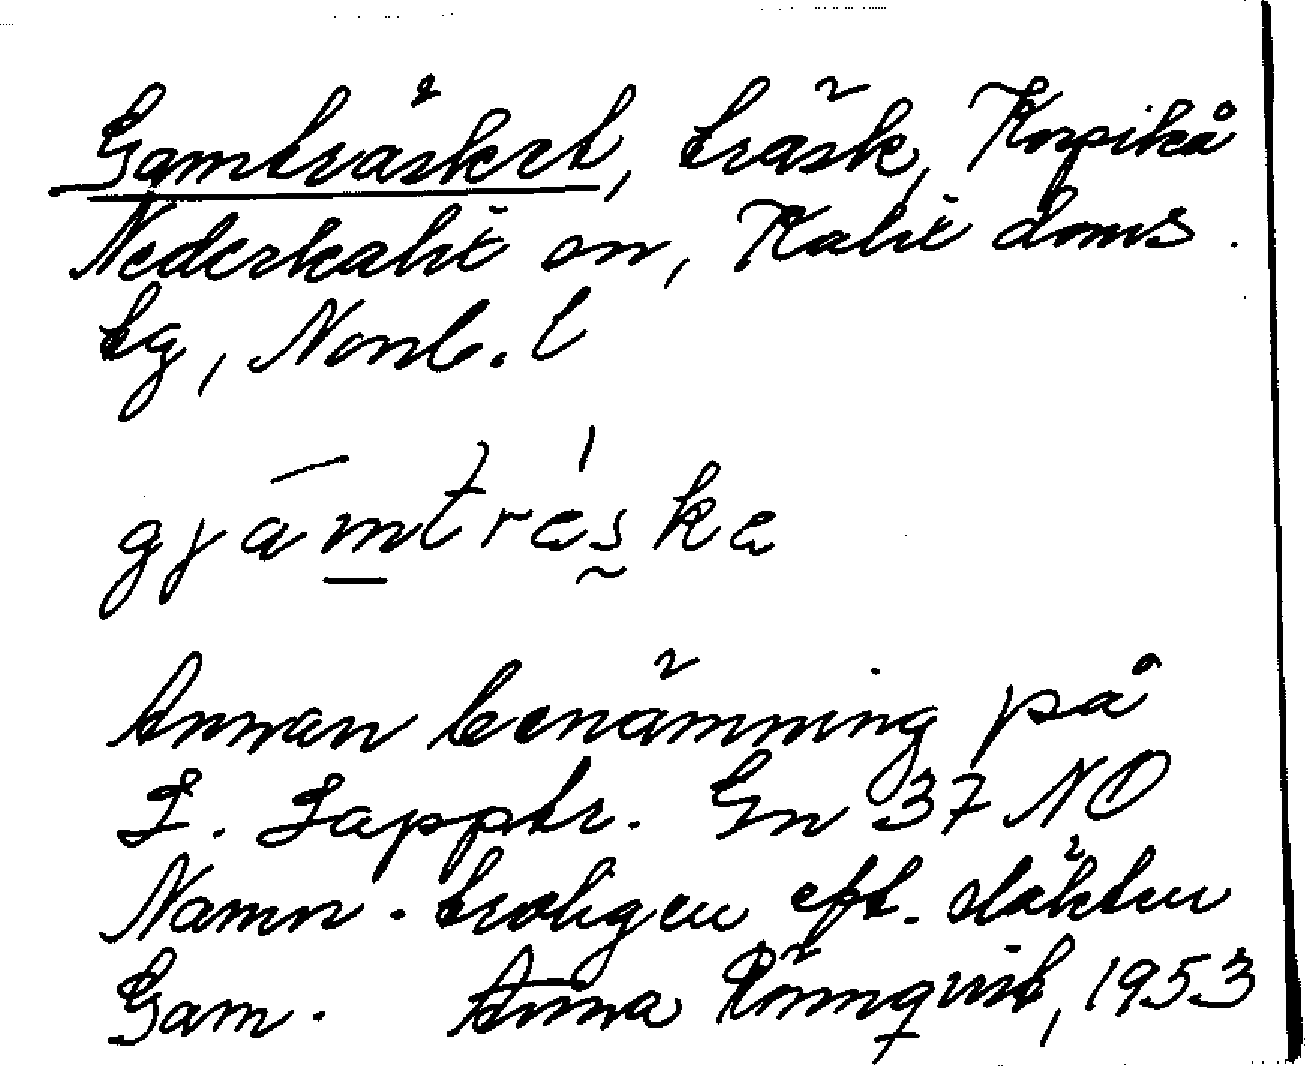 Gamträsket, träsk, Korpikå
Nederkalix sn, Kalix doms.
tg, Norrb. l
gjamtræska
Annan benämning på
L. Lapptr. Gn 37 NO
Namn. troligen eft. släkten
Gam. Anna Rönnqvist, 1953